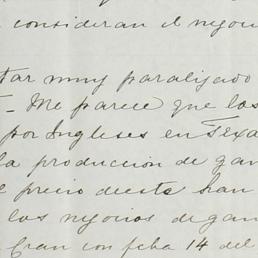 consideran el negocio
tar muy paralizado
Me parece que las
por Ingleses en Texa
la produccion de gan
precio de este han
los negocios de gan
con fcha 14 del